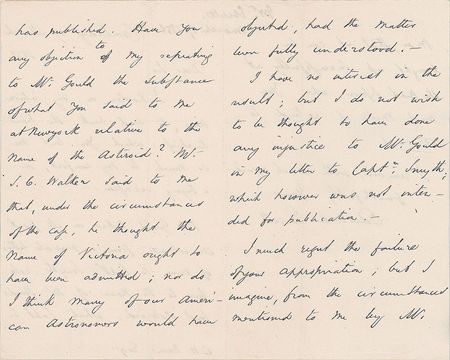 has published. Have you
any objection to my repeating
to Mr. Gould the substance
of what you said to me
at Newyork relative to the
name of the Asteroid? Mr.
S. C. Walker said to me
that, under the circumstances
of the case, he thought the
name of Victoria ought to
have been admitted; nor do
I think many of our Ameri-
can Astronomers would have
objected, had the matter
been fully understood. —
I have no interest in the
result; but I do not wish
to be thought to have done
any injustice to Mr. Gould
in my letter to Captn. Smyth,
which however was not inten-
ded for publication. —
I much regret the failure
of your appropriation; but I
imagine, from the circumstances
mentioned to me by Mr.